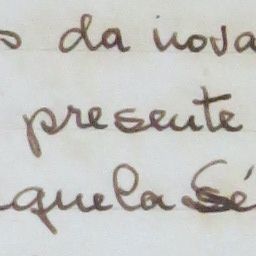 da nova
presente
quela Sé